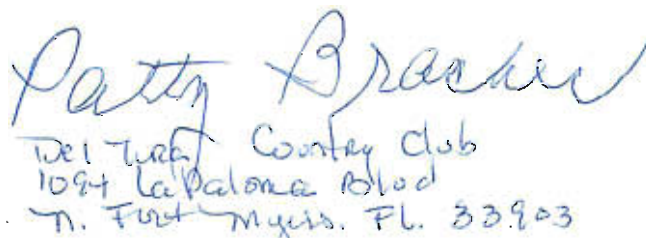 Patty Bracken
Del Tura Country Club
1094 LaPaloma Blvd
N. Fort Myers. FL. 33903